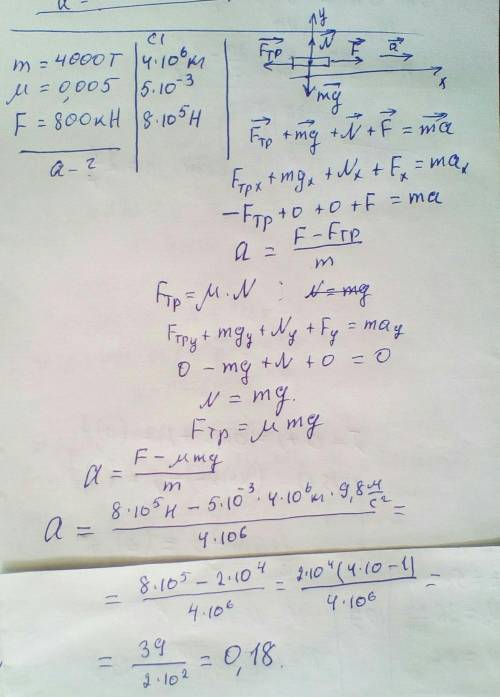 СИ
m = 4000т 4·10⁶кг
μ = 0,005 5·10⁻³
F = 800кН 8·10⁵Н
a - ?
y
N⃗
F⃗тр F⃗ a⃗
x
mg⃗
F⃗тр + mg⃗ + N⃗ + F⃗ = ma⃗
Fтрx + mgx + Nx + Fx = max
-Fтр + 0 + 0 + F = ma
a = (F - Fтр)/m
Fтр = μ·N ; N = mg
Fтрy + mgy + Ny + Fy = may
0 - mg + N + 0 = 0
N = mg.
Fтр = μmg
a = (F - μmg)/m
a = (8·10⁵Н - 5·10⁻³·4·10⁶кг·9,8 м/с²)/(4·10⁶) =
= (8·10⁵ - 2·10⁴)/(4·10⁶) = (2·10⁴(4·10 - 1))/(4·10⁶) =
= 39/(2·10²) = 0,18.